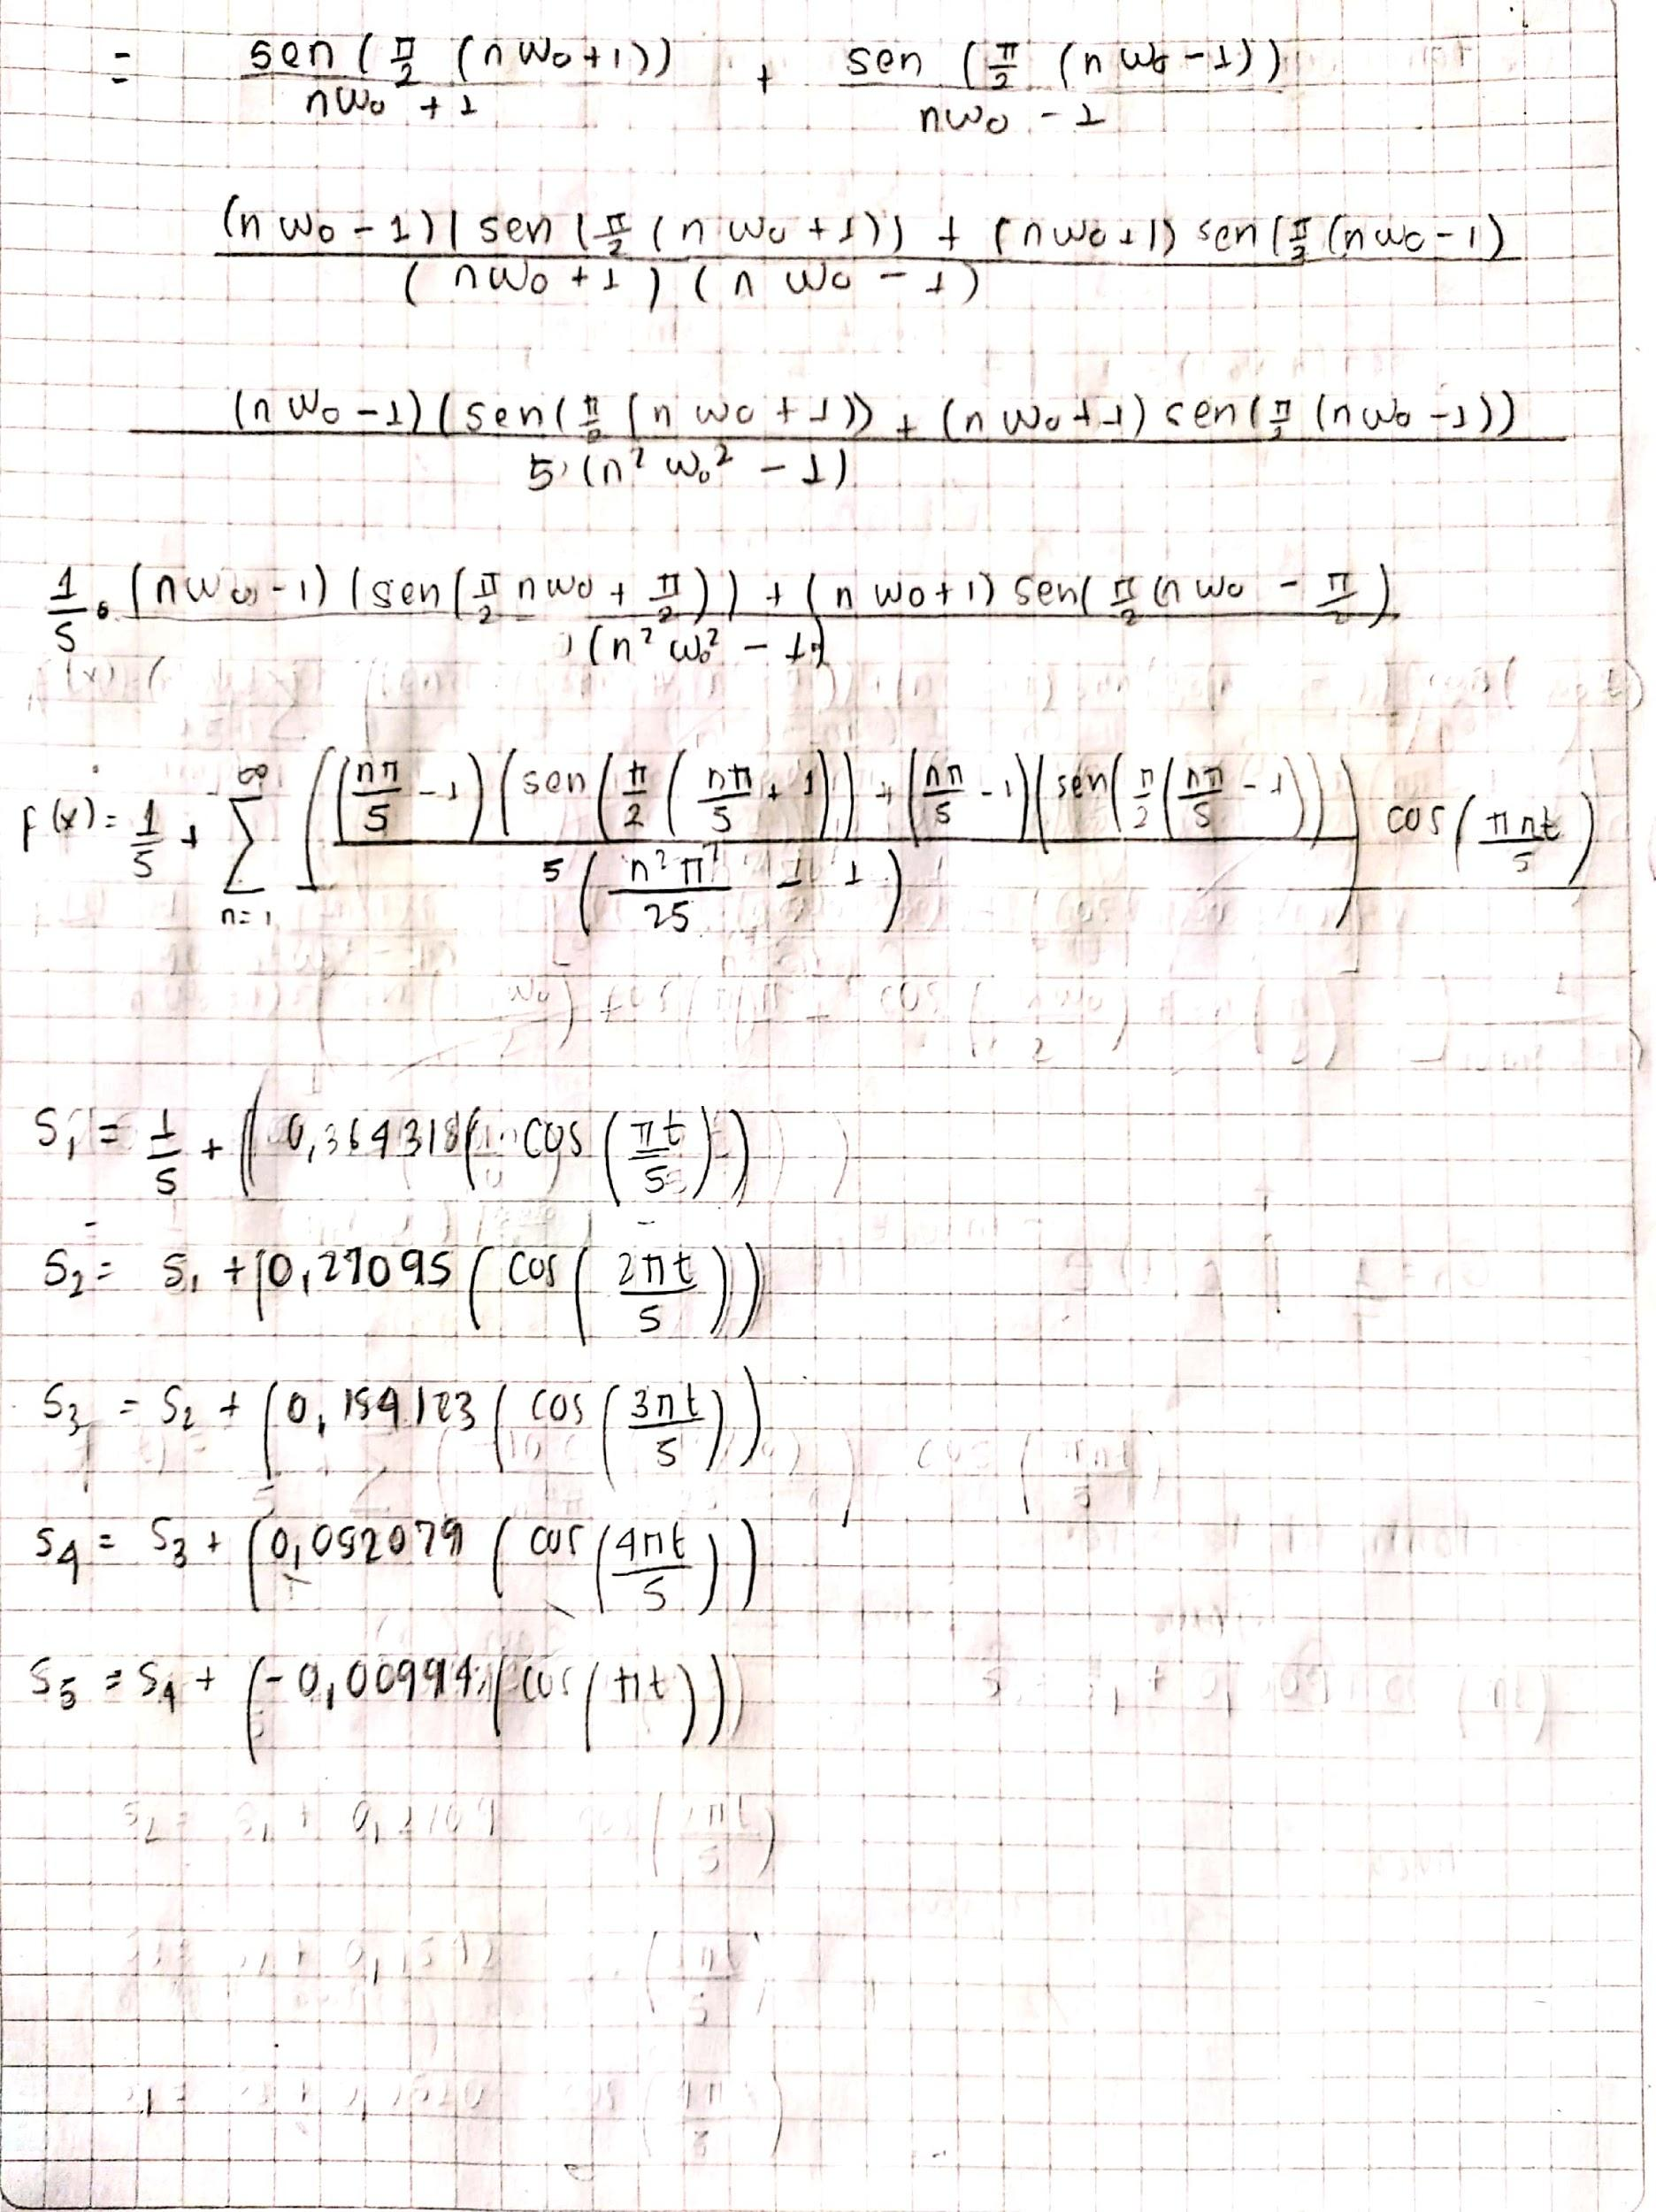 = sen(π/2 (nw₀+1)) / nw₀+1 + sen(π/2 (nw₀-1)) / nw₀-1
(nw₀-1)(sen(π/2(nw₀+1)) + (nw₀+1) sen(π/2(nw₀-1) / (nw₀+1)(nw₀-1)
(nw₀-1)(sen(π/2(nw₀+1)) + (nw₀+1) sen(π/2(nw₀-1)) / 5(n²w₀²-1)
1/5 · (nw₀-1)(sen(π/2 nw₀ + π/2)) + (nw₀+1) sen(π/2(nw₀ - π/2) / (n²w₀²-1)
f(x) = 1/5 + ∞ Σ n=1 ((nπ/5 -1)(sen(π/2(nπ/5 +1)) + (nπ/5 -1)(sen(π/2(nπ/5 -1))) / 5(n²π²/25 - 1)) cos(πnt/5)
S₁ = 1/5 + (0,364318(cos(πt/5))
S₂ = S₁ + (0,27095(cos(2πt/5))
S₃ = S₂ + (0,154123(cos(3πt/5))
S₄ = S₃ + (0,052079(cos(4πt/5))
S₅ = S₄ + (-0,00994(cos(πt)))